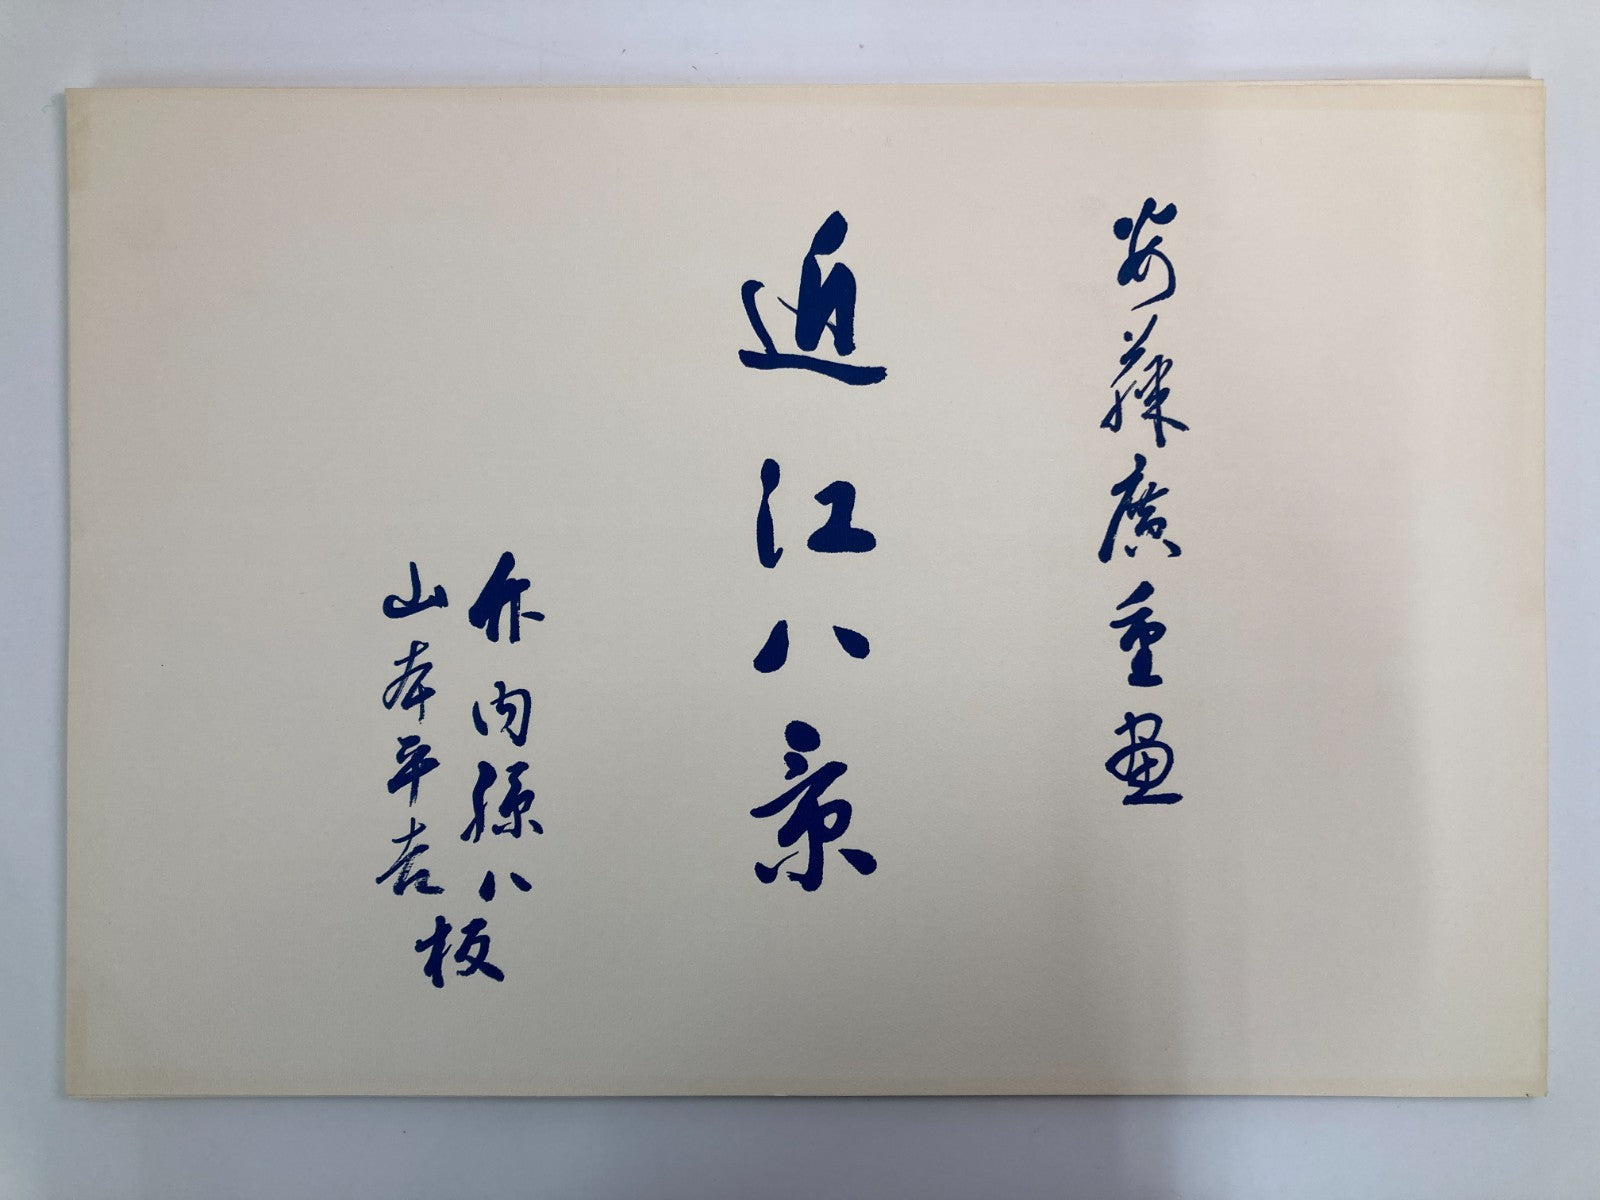 安藤廣重画
近江八景
竹内孫八
山本平吉
板